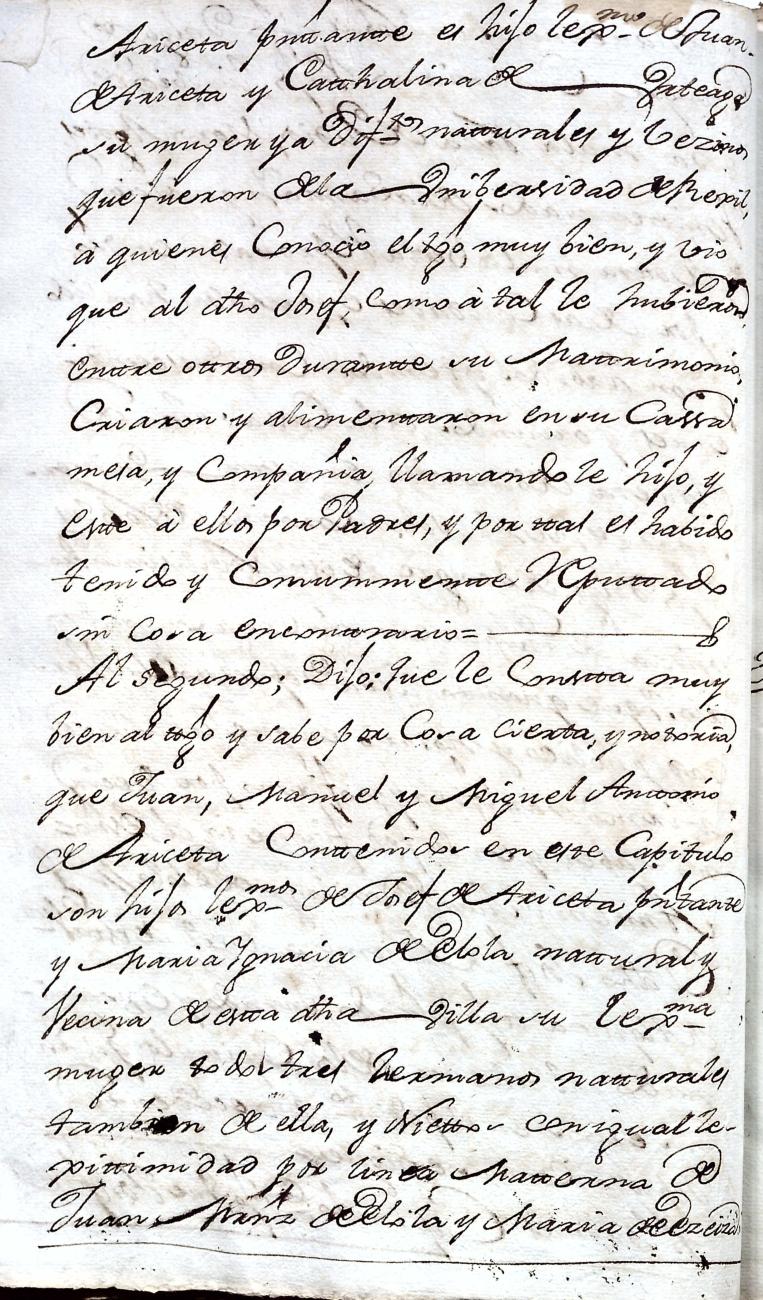 Ariceta pnttantte es hijo lexmo de Juan
de Ariceta y Catthalina de Arteaga
su muger ya difttos natturales y Vezinos
que fueron de la Unibersidad de Rexil,
à quienes Conocio el tgo, muy bien, y vio
que al dho Josef, como à tal le hubieron,
enttre ottros durantte su Mattrimonio,
Criaron y alimenttaron en su Cassa
mesa, y Compañia, llamandole hijo, y
estte à ellos por Padres, y por ttal es habido
tenido y Comunmentte Reputtado
sin Cosa enconttrario=
Al segundo; Dijo: que le Constta muy
bien al ttgo y sabe por Cosa Cierta, y notoria,
que Juan, Manuel y Miguel Anttonio
de Ariceta Conttenidos en este Capitulo
son hijos lexmos de Josef de Ariceta pnttante
y Maria Ygnacia de Elola nattural y
Vecina de estta dha Villa su lexma
muger todos tres hermanos natturales
tambien de ella, y Niettos con igual le-
xittimidad por linea Matterna de
Juan Mrnz de Elola y Maria de